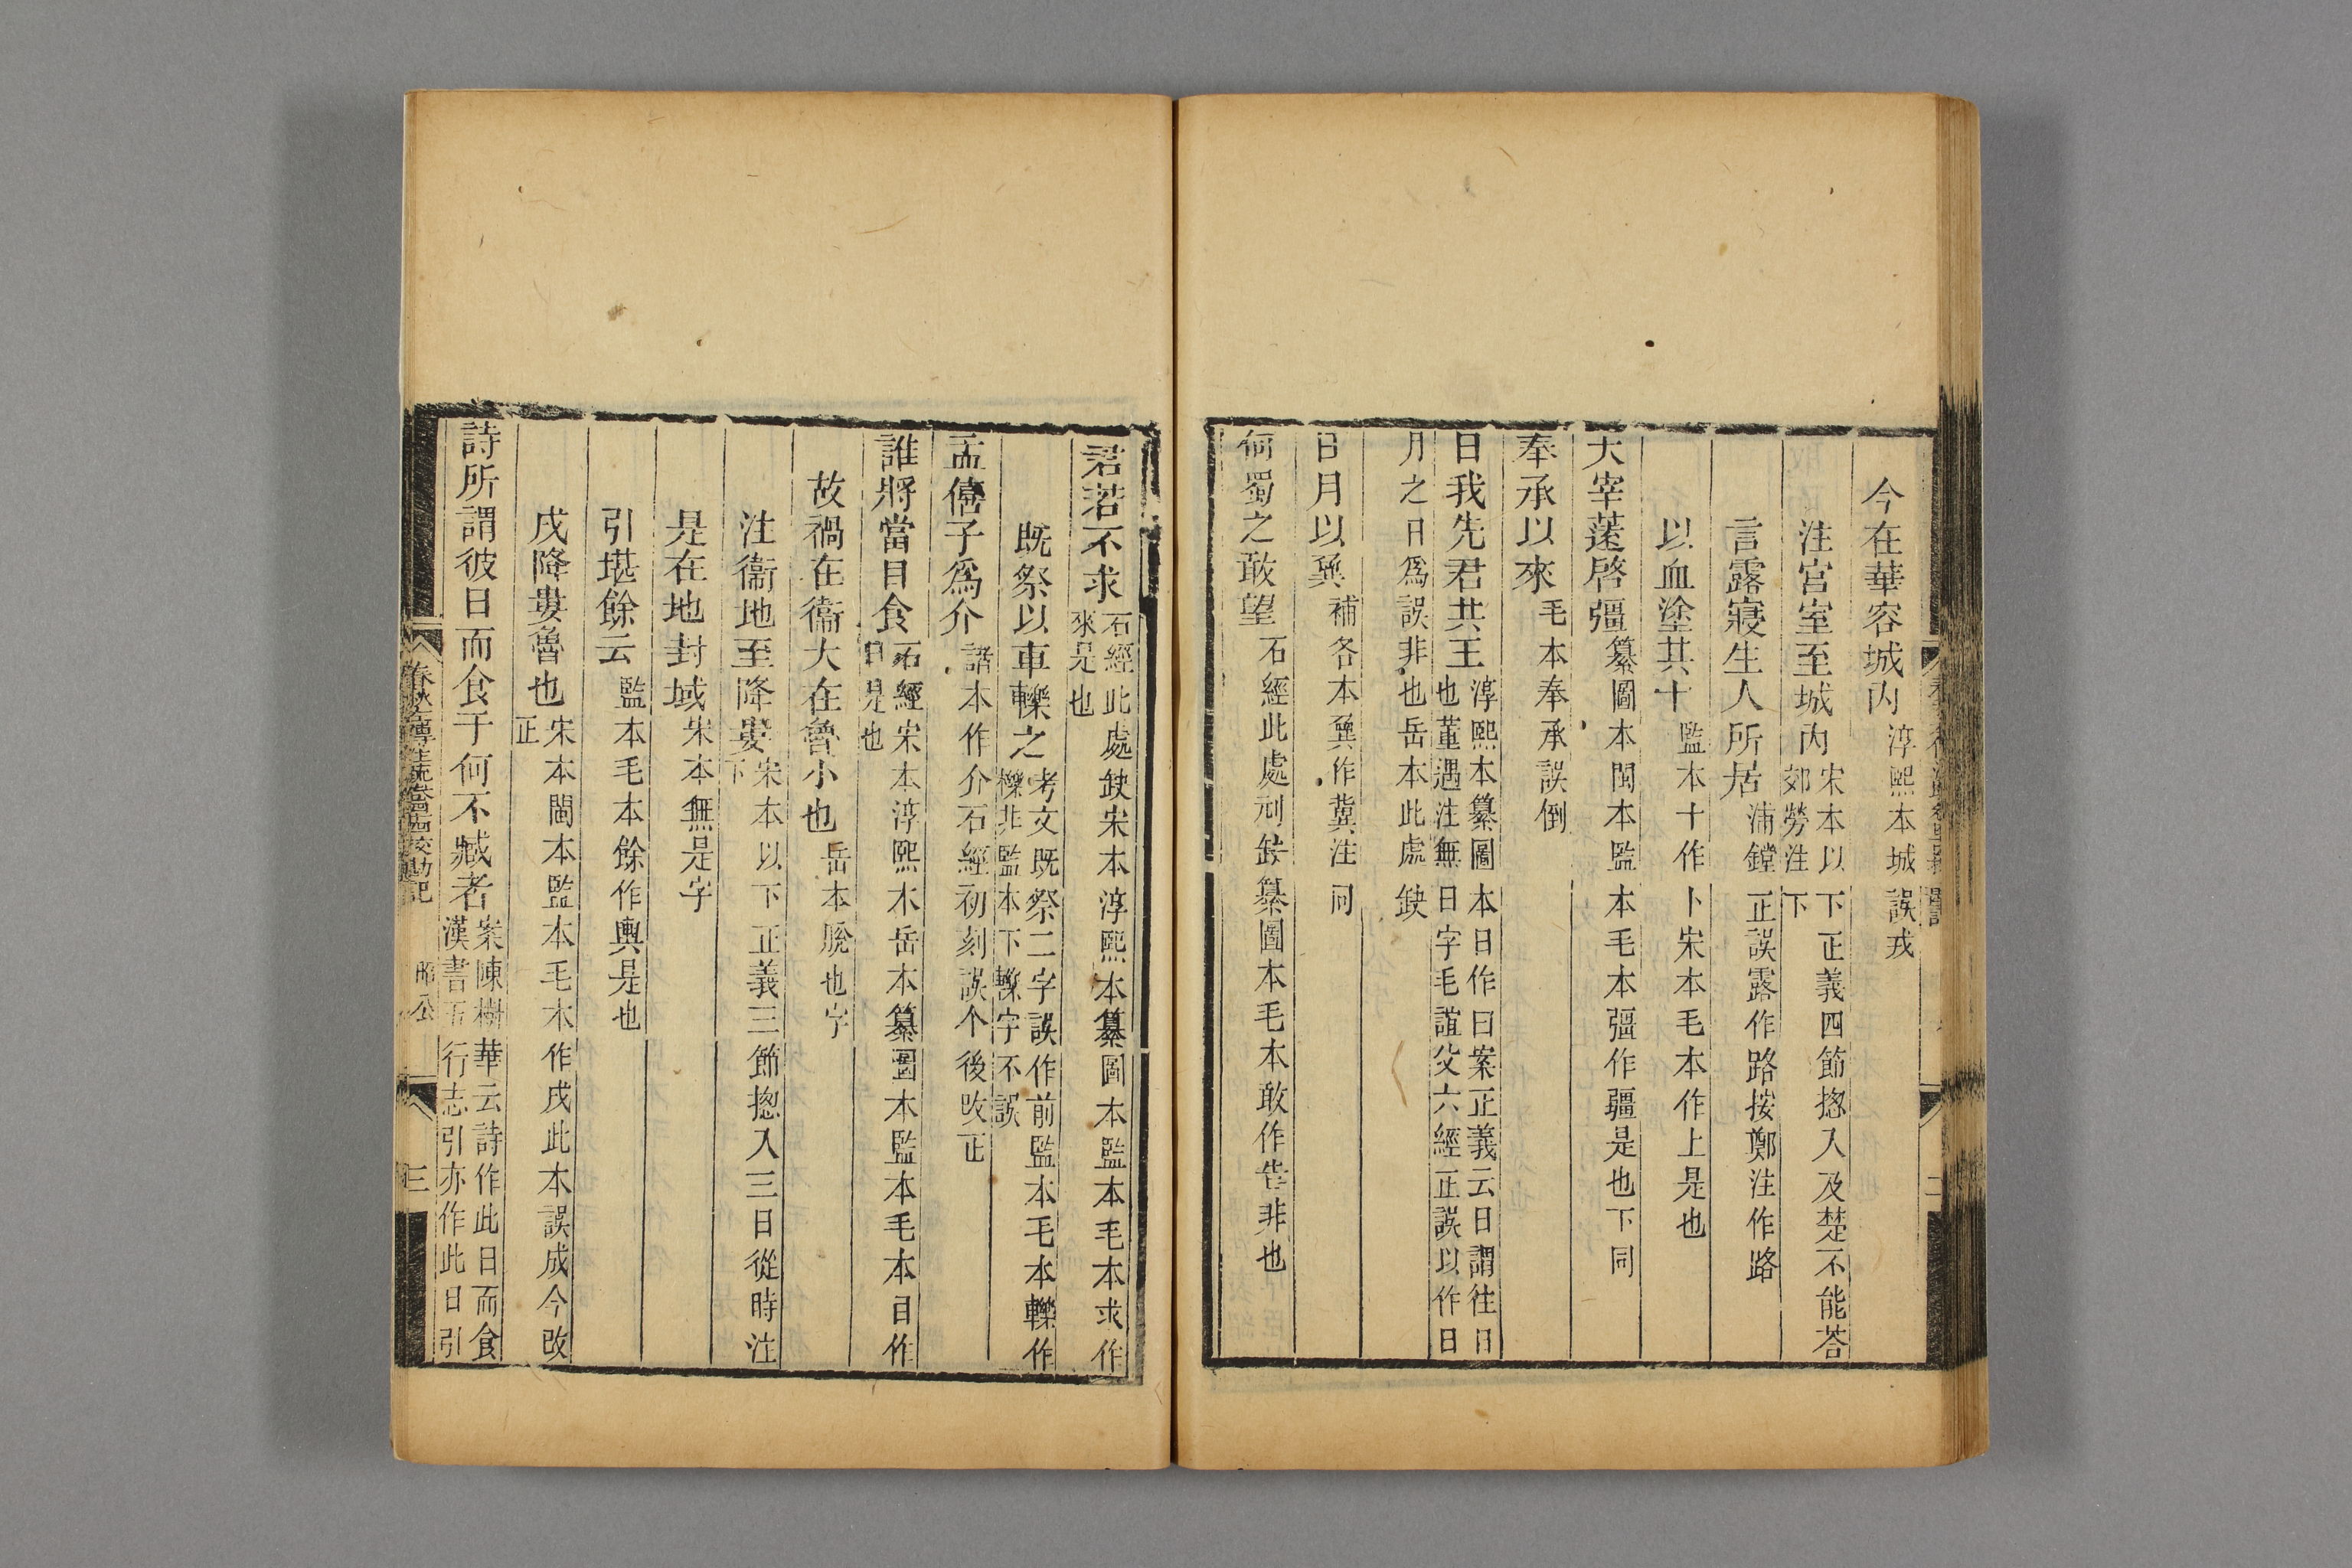 今在華容城內 淳熙本城誤戎
注宮室至城內 宋本以下正義四節揔入及楚不能荅郊勞注下
言露寢生人所居 浦鏜正誤露作路按鄭注作路
以血塗其十 監本十作卜宋本毛本作上是也
大宰薳啓彊 纂圖本閩本監本毛本彊作疆是也下同
奉承以來 毛本奉承誤倒
日我先君共王 淳熙本纂圖本日作曰案正義云日謂往日也董遇注無日字毛誼父六經正誤以作日
月之日爲誤非也岳本此處缺
日月以冀 補各本冀作冀注同
何蜀之敢望 石經此處刓缺纂圖本毛本敢作告非也
君若不求 石經此處缺宋本淳熙本纂圖本監本毛本求作來是也
既祭以車轢之 考文既祭二字誤作前監本毛本轢作櫟非監本下轢字不誤
孟僖子爲介 諸本作介石經初刻誤个後改正
誰將當目食 石經宋本淳熙本岳本纂圖本監本毛本目作日是也
故禍在衞大在魯小也 岳本脫也字
注衞地至降婁 宋本以下正義三節揔入三日從時注下
是在地封域 宋本無是字
引堪餘云 監本毛本餘作輿是也
戌降婁魯也 宋本閩本監本毛本作戌此本誤成今改正
詩所謂彼日而食于何不臧者 案陳樹華云詩作此日而食漢書五行志引亦作此日引
春秋左傳注疏卷四十四校勘記
昭公
三